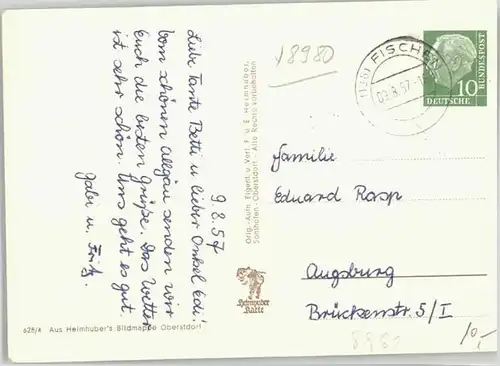 9.8.57
Liebe Tante Betti u. lieber Onkel Edi!
Vom schönen Allgäu senden wir
Euch die besten Grüße. Das Wetter
ist sehr schön. Uns geht es gut.
Gabi u. Fritz.
Orig.-Aufn. Eigent. u. Verl. F. u. E. Heimhuber,
Sonthofen-Oberstdorf - Alle Rechte vorbehalten
Heimhuber
Karte
628/4 Aus Heimhuber's Bildmappe Oberstdorf
18980
(13b) FISCHEN
09.8.57
10
DEUTSCHE
BUNDESPOST
Familie
Eduard Rasp
Augsburg
Brückenstr. 5/I
10,-